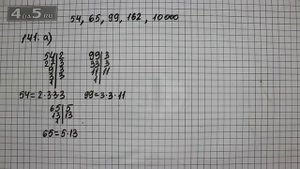 4 5.ru
54, 65, 99, 162, 10000
141. а)
54|2 99|3
27|3 33|3
9|3 11|11
3|3 1|
1|
54=2·3·3·3 99=3·3·11
65|5
13|13
1|
65=5·13